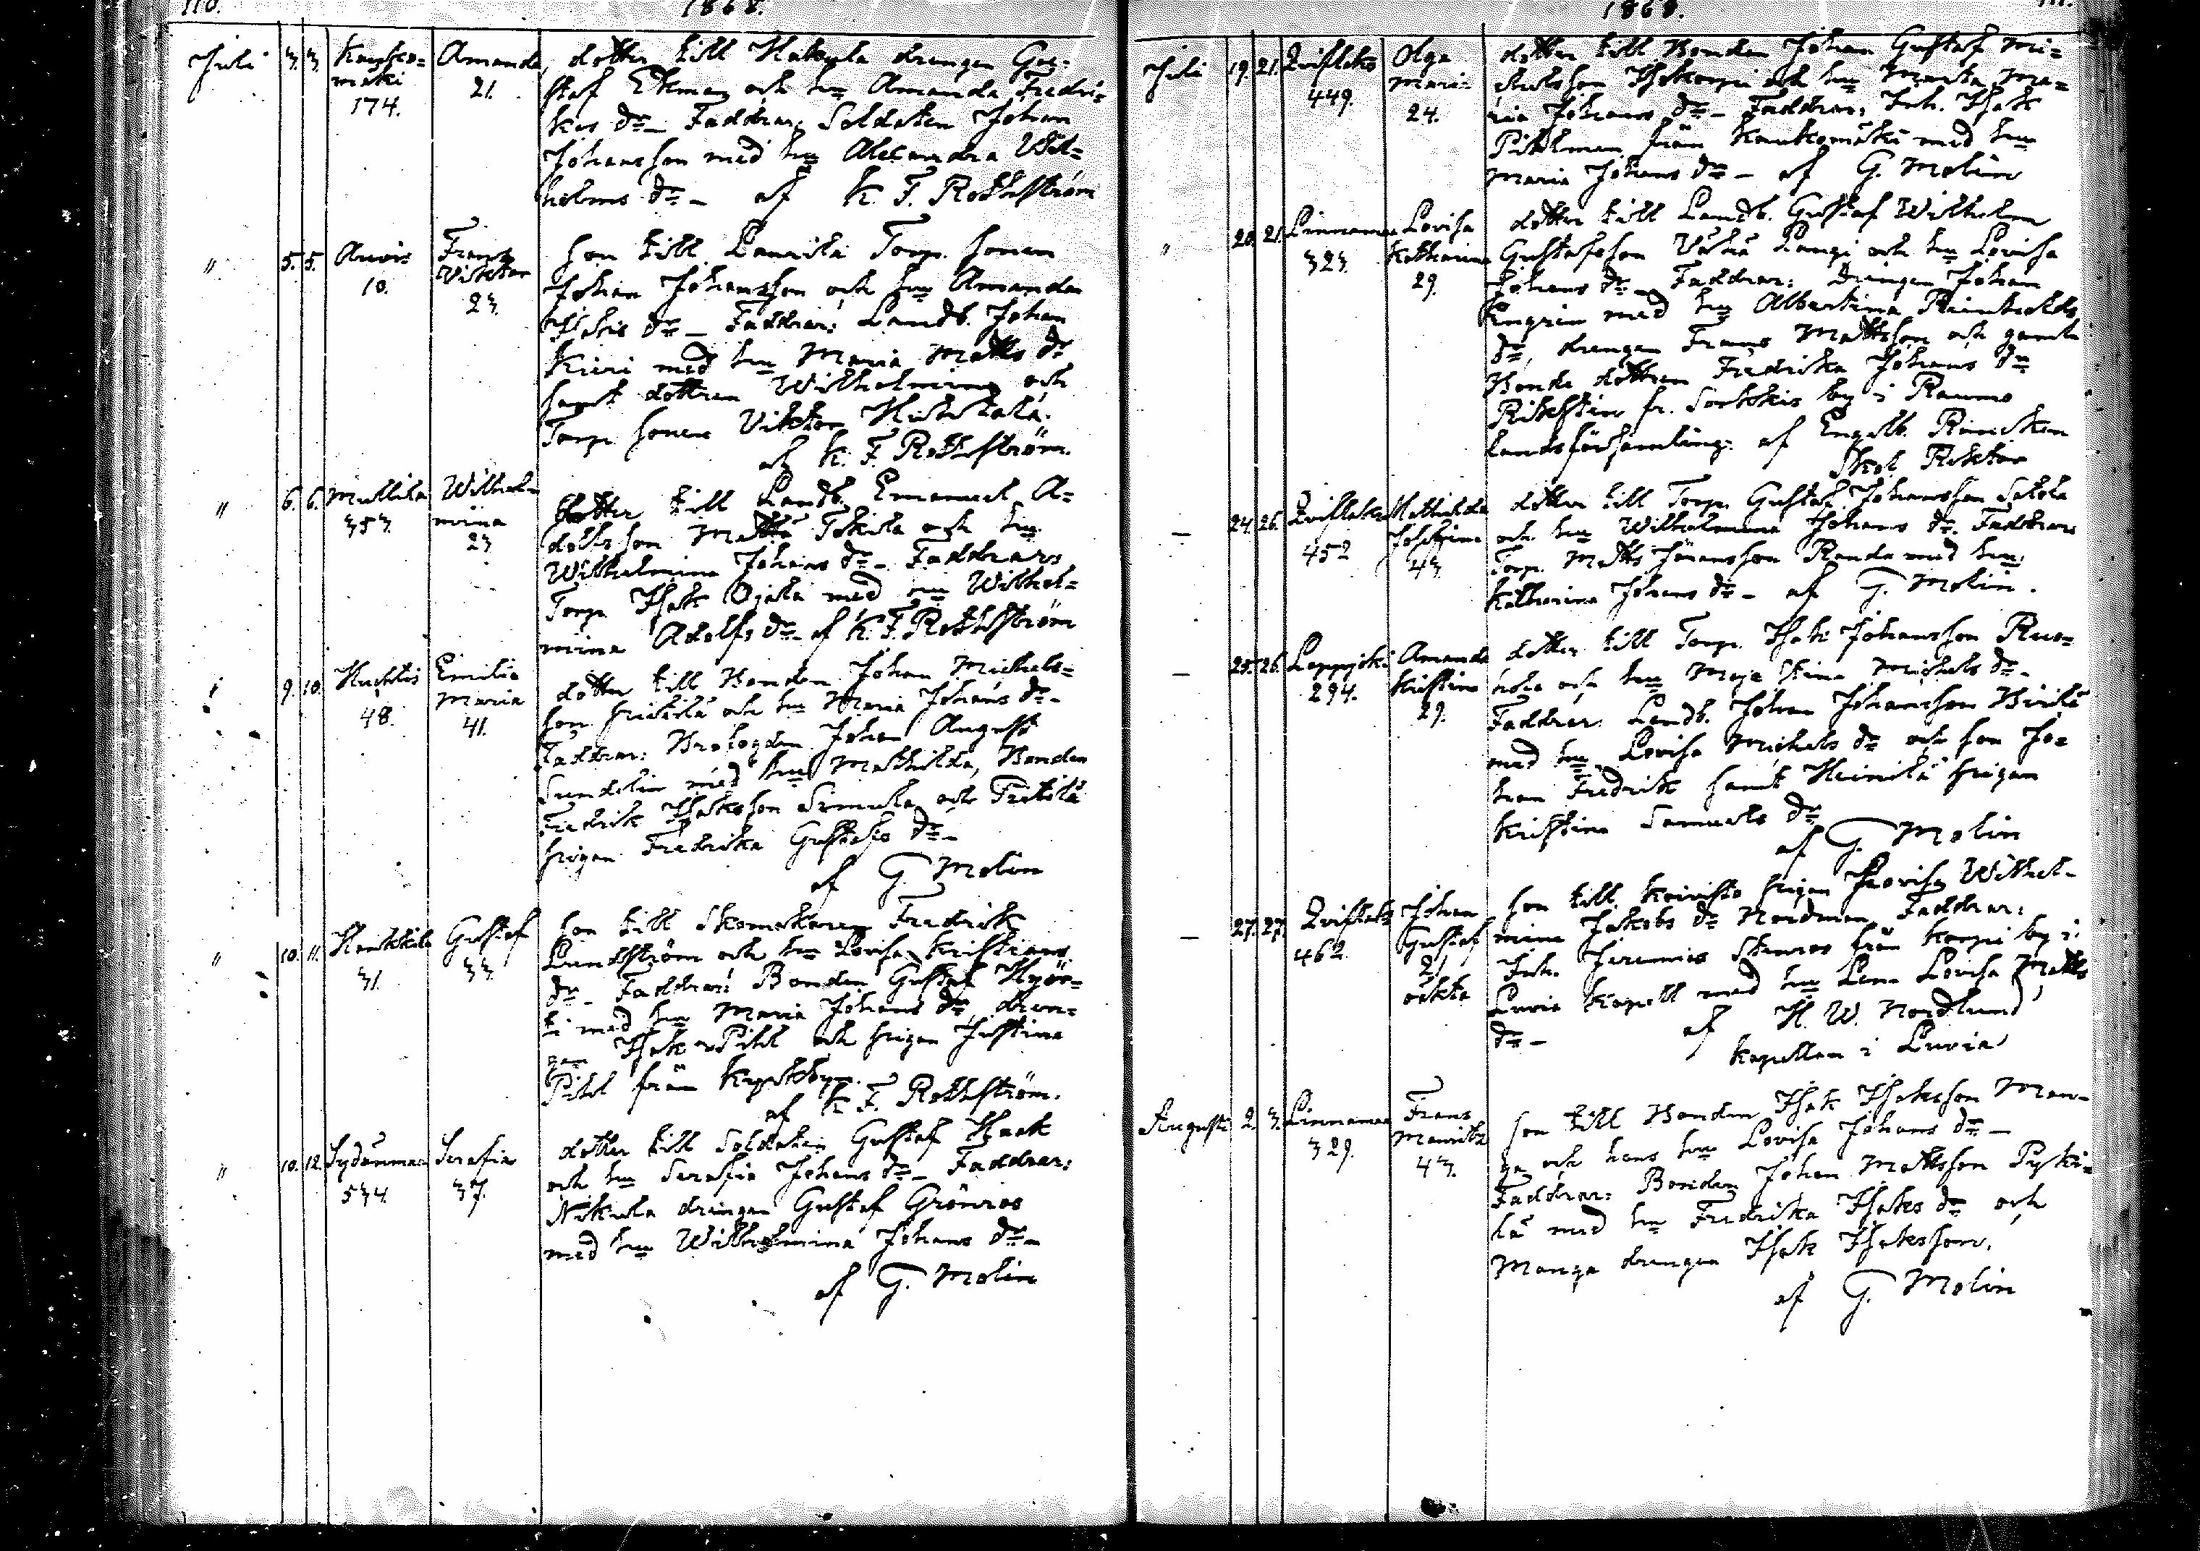 110.
1868.
Juli 3. 3. Kaukomäki 174. Amanda 21.
dotter till Hakula drängen Gus=
staf Ekman och hu Amanda Fredri=
kas dr_ Faddrar: Soldaten Johan
Johansson med hu Alexandra Wil=
helms dr_ af K. F. Rothström
" 5. 5. Anvis 10. Frans Wiktor 23.
son till Laurila Torp. sonen
Johan Johansson och hu Amanda
Isaks dr_ Faddrar: Landb. Johan
Kiiri med hu Maria Matts dr
samt dottren Wilhelmina och
Torp. sonen Viktor
af K. F. Rothström.
" 6. 6. Mullila 353. Wilhelmina 23.
dotter till Landb. Emanuel A=
dolfsson Mattä Tokila och hu
Wilhelmina Johans dr_ Faddrar:
Torp. Isak Ojala med hu Wilhel=
mina Adolfs dr_ af K. F. Rothström
9. 10. Huhtis 48. Emilia Maria 41.
dotter till Bonden Johan Michels=
son och hu Maria Johans dr_
Faddrar: Johan August
Sundelin med hu Mathilda, Bonden
Fredrik Isaksson och
pigan Fredrika Gustafs dr_
af G. Molin
" 10. 11. Henkkila 31. Gustaf 33.
son till Skomakaren Fredrik
Lundström och hu Lovisa Kristians
dr_ Faddrar: Bonden Gustaf Hyör=
ti med hu Maria Johans dr, drän=
gen Isak Pihl och pigan Justina
Pihl från
af K. F. Rothström.
" 10. 12. Sydänmaa 534. Serafia 37.
dotter till Soldaten Gustaf Haak
och hu Serafia Johans dr_ Faddrar:
Nikula drängen Gustaf Grönroos
med hu Wilhelmina Johans dr_
af G. Molin
1868.
111.
Juli 19. 21. 449. Olga Maria 24.
dotter till Bonden Johan Gustaf Mi=
chelsson och hu Maria Ma=
ria Johans dr_ Faddrar: Inh. Isak
Pihlman från Kaukomäki med hu
Maria Johans dr_ af G. Molin
" 20. 21. Linnamaa 323. Lovisa Katharina 29.
dotter till Landb. Gustaf Wilhelm
Gustafsson Vähä Langi och hu Lovisa
Johans dr_ Faddrar: Drängen Johan
Engrén med hu Albertina Reinholds
dr, drängen Frans Mattsson och gamla
Bonde dottren Fredrika Johans dr
fr. Sorkkis by i Raumo
landsförsamling. af Engelb. Rancken
Skol Rektor
_ 24. 26. 452 Mathilda Josefina 43.
dotter till Torp. Gustaf Johansson Salola
och hu Wilhelmina Johans dr. Faddrar:
Torp. Matts Jöransson Randa med hu
Katharina Johans dr_ af G. Molin.
_ 25. 26. Leppijoki 294. Amanda Kristina 29.
dotter till Torp. Isak Johansson Rus=
kola och hu Maja Stina Michels dr_
Faddrar: Landb. Johan Johansson
med hu Lovisa Michels dr och son Jo=
han Fredrik samt Heinilä pigan
Kristina Samuels dr
af G. Molin
_ 27. 27. 462. Johan Gustaf 21. oäkta
son till Koivisto pigan Lovisa Wilhel-
mina Jakobs dr Nordman Faddrar:
Inh. Jeremias Stenroos från Korpi by i
Luvia Kapell med hu Lena Lovisa Matts
dr_ af H. W. Nordlund
Kapellan i Luvia
Augusti 2. 3. Linnamaa 329. Frans Mauritz 43.
son till Bonden Isak Isaksson Man-
ga och hans hu Lovisa Johans dr_
Faddrar: Bonden Johan Mattsson Pyki=
lä med hu Fredrika Isaks dr och
Manga drängen Isak Isaksson.
af G. Molin